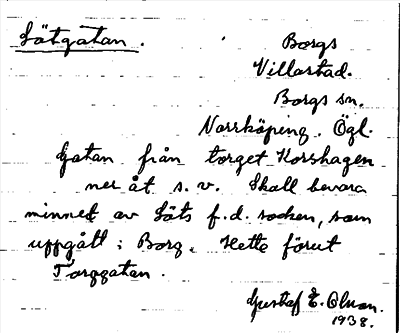 Lötgatan.
Borgs
Villastad.
Borgs sn.
Norrköping. Ögl.
Gatan från torget Korshagen
ner åt s. v. Skall bevara
minnet av Löts f.d. socken, som
uppgått i Borg. Hette förut
Torggatan.
Gustaf E. Olson.
1938.